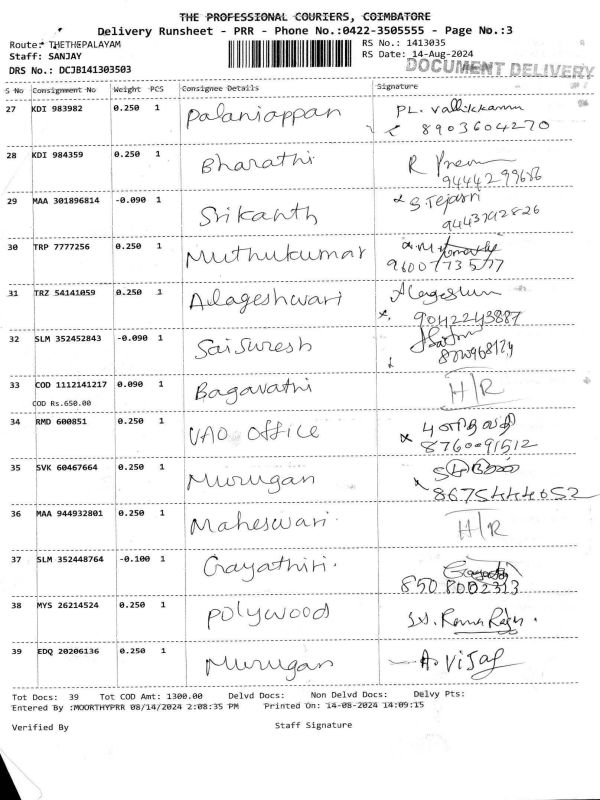 THE PROFESSIONAL COURIERS, COIMBATORE
Delivery Runsheet - PRR - Phone No.:0422-3505555 - Page No.:3
Route: THETHEPALAYAM
RS No.: 1413035
Staff: SANJAY
RS Date: 14-Aug-2024
DRS No.: DCJB141303503
DOCUMENT DELIVERY
S No Consignment No Weight PCS Consignee Details Signature
27 KDI 983982 0.250 1 Palaniappan PL. Vallikkannu
8903604270
28 KDI 984359 0.250 1 Bharathi R Prem
9444299686
29 MAA 301896814 -0.090 1 Srikanth S. Tejasri
30 TRP 7777256 0.250 1 Muthukumar
9600773577
31 TRZ 54141059 0.250 1 Alageshwari
9042243887
32 SLM 352452843 -0.090 1 Sai Suresh
33 COD 1112141217 0.090 1 Bagavathi H/R
COD Rs.650.00
34 RMD 600851 0.250 1 VAO Office
8760091512
35 SVK 60467664 0.250 1 Murugan
8675444652
36 MAA 944932801 0.250 1 Maheswari H/R
37 SLM 352448764 -0.100 1 Gayathiri
8508002313
38 MYS 26214524 0.250 1 Polywood
39 EDQ 20206136 0.250 1 Murugan A. Vijay
Tot Docs: 39 Tot COD Amt: 1300.00 Delvd Docs: Non Delvd Docs: Delvy Pts:
Entered By :MOORTHYPRR 08/14/2024 2:08:35 PM Printed On: 14-08-2024 14:09:15
Verified By Staff Signature